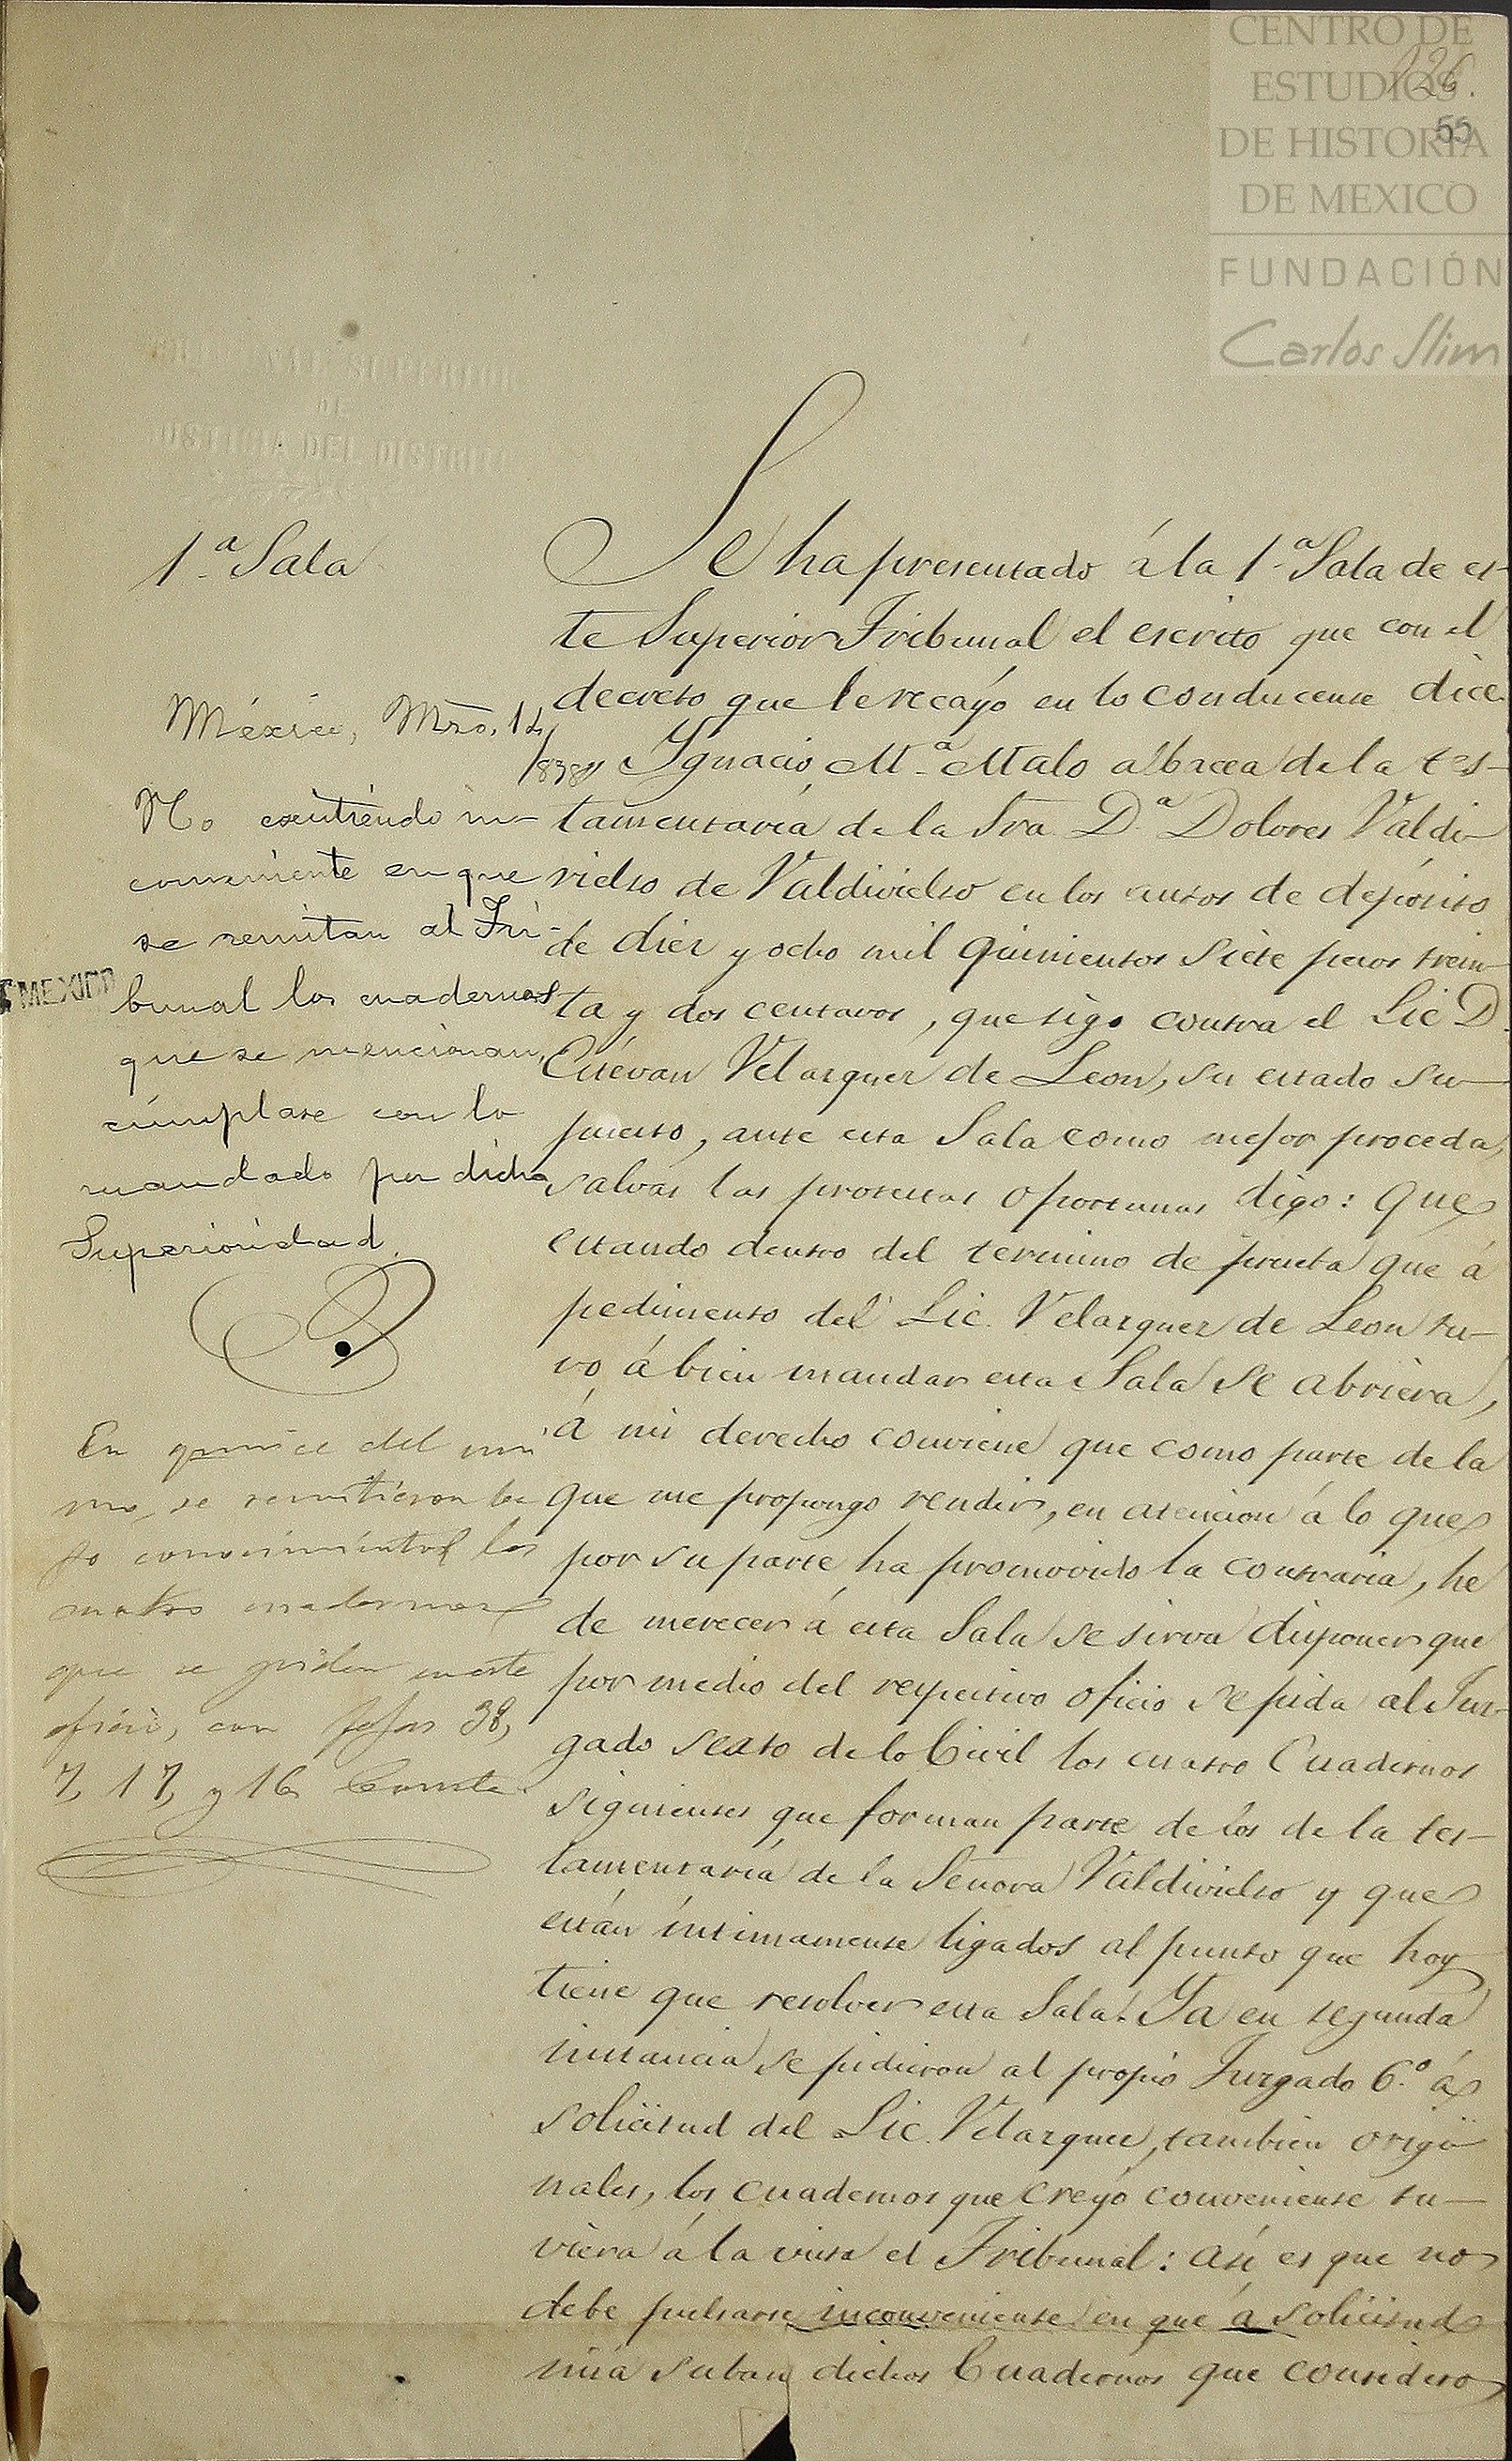 CENTRO DE
ESTUDIOS
DE HISTORIA
DE MEXICO
FUNDACIÓN
Carlos Slim
126.
55
TRIBUNAL SUPERIOR
DE
JUSTICIA DEL DISTRITO
1.ª Sala
México, Mzo. 14
No existiendo in-
conveniente en que
se remitan al Tri-
bunal los cuadernos
que se mencionan,
cúmplase con lo
mandado por dicha
Superioridad.
MEXICO
En quince del mis
mo, se remitieron ba
jo conocimiento los
cuatro cuadernos
que se piden en este
oficio, con fojas 38,
7, 17, y 16. Conste
Se ha presentado á la 1.ª Sala de es-
te Superior Tribunal el escrito que con el
decreto que le recayó en lo conducente dice
Ygnacio M.ª Malo albacea de la tes-
tamentaría de la Sra. D.ª Dolores Valdi-
vielso de Valdivielso en los autos de depósito
de diez y ocho mil quinientos siete pesos trein-
ta y dos centavos, que sigo contra el Lic D.
Estévan Velazquez de Leon, su estado su-
puesto, ante esta Sala como mejor proceda,
salvas las protestas oportunas digo: Que
estando dentro del termino de prueba que á
pedimento del Lic. Velazquez de Leon tu-
vo á bien mandar esta Sala se abriera,
á mi derecho conviene que como parte de la
que me propongo rendir, en atencion á lo que
por su parte ha promovido la contraria, he
de merecer á esta Sala se sirva disponer que
por medio del respectivo oficio se pida al Juz-
gado sexto de lo Civil los cuatro Cuadernos
siguientes que forman parte de los de la tes-
tamentaría de la Señora Valdivielso y que
están íntimamente ligados al punto que hoy
tiene que resolver esta Sala. Ya en segunda
instancia se pidieron al propio Juzgado 6.º á
solicitud del Lic. Velazquez, tambien origi-
nales, los cuadernos que creyó conveniente tu-
viera á la vista el Tribunal: así es que no
debe pulsarse inconveniente en que á solicitud
mia suban dichos Cuadernos que considero